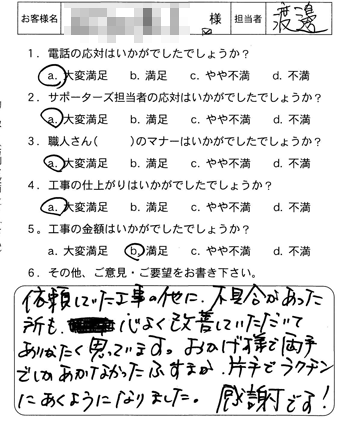 お客様名 様 担当者 渡邊
1．電話の応対はいかがでしたでしょうか？
a. 大変満足 b. 満足 c. やや不満 d. 不満
2．サポーターズ担当者の応対はいかがでしたでしょうか？
a. 大変満足 b. 満足 c. やや不満 d. 不満
3．職人さん( )のマナーはいかがでしたでしょうか？
a. 大変満足 b. 満足 c. やや不満 d. 不満
4．工事の仕上がりはいかがでしたでしょうか？
a. 大変満足 b. 満足 c. やや不満 d. 不満
5．工事の金額はいかがでしたでしょうか？
a. 大変満足 b. 満足 c. やや不満 d. 不満
6．その他、ご意見・ご要望をお書き下さい。
依頼していた工事の他に、不具合があった
所も、じよく改善していただいて
ありがたく思っています。おかげ様で両手
でしかあかなかったふすまが、片手でラクチン
にあくようになりました。感謝です！